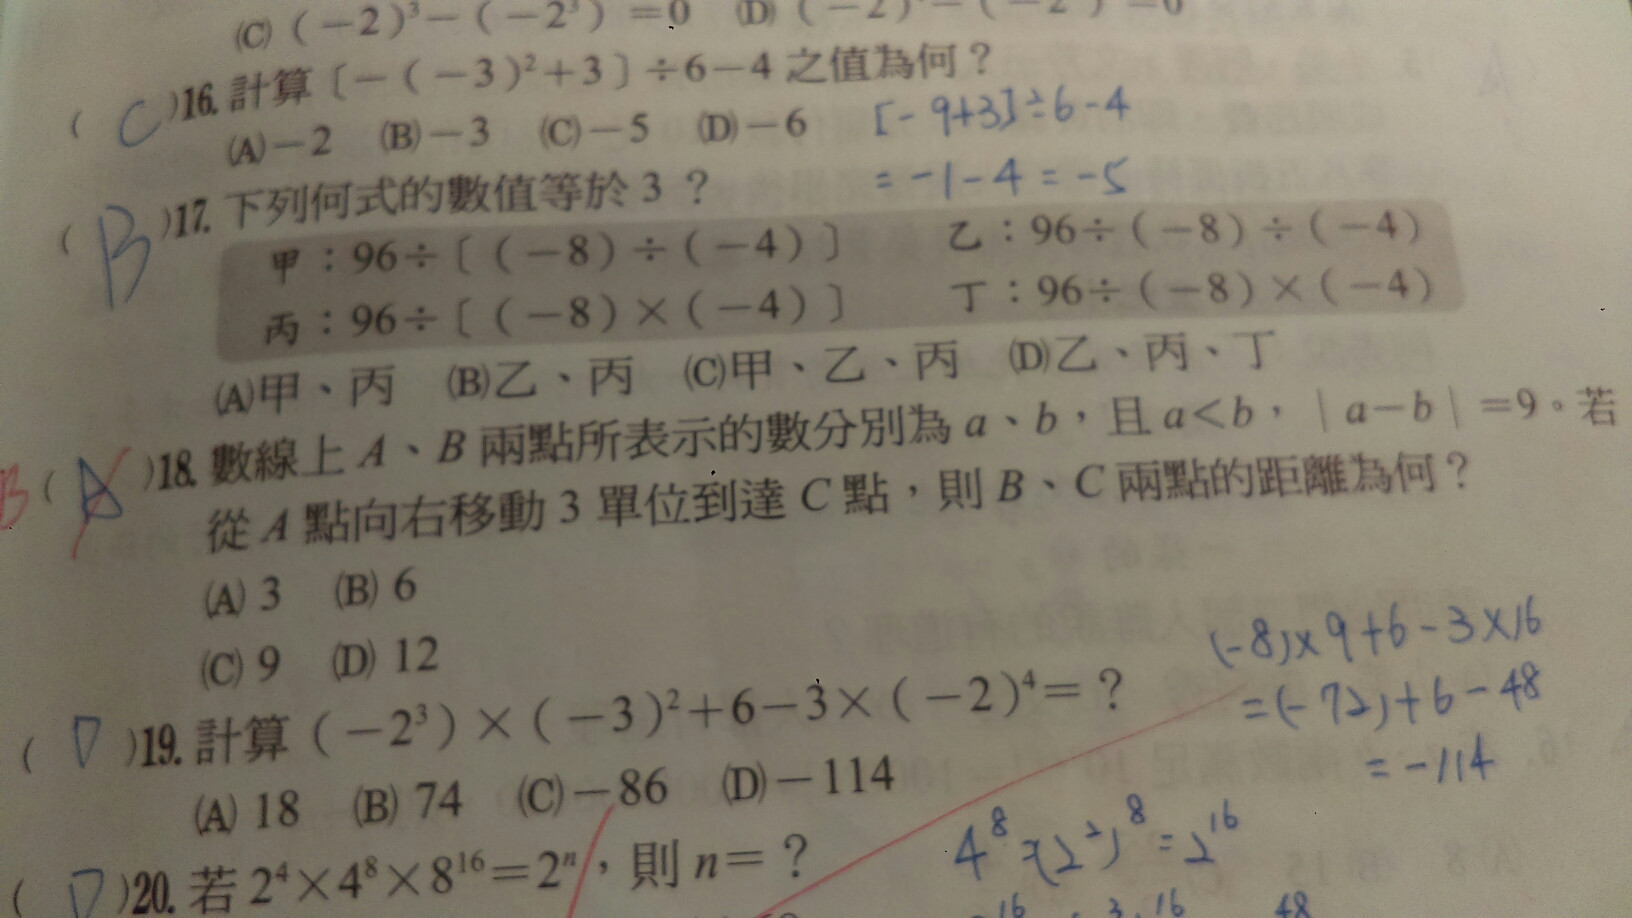 (C) (－2)³－(－2³) ＝0 (D) (－2) －(－2 ) ＝0
( C )16. 計算〔－(－3)²＋3〕÷6－4 之值為何？
(A)－2 (B)－3 (C)－5 (D)－6 [-9+3]÷6-4
= -1-4 = -5
( B )17. 下列何式的數值等於 3 ？
甲：96÷〔(－8)÷(－4)〕 乙：96÷(－8)÷(－4)
丙：96÷〔(－8)×(－4)〕 丁：96÷(－8)×(－4)
(A)甲、丙 (B)乙、丙 (C)甲、乙、丙 (D)乙、丙、丁
B ( A )18. 數線上 A、B 兩點所表示的數分別為 a、b，且 a<b，|a－b|＝9。若
從 A 點向右移動 3 單位到達 C 點，則 B、C 兩點的距離為何？
(A) 3 (B) 6
(C) 9 (D) 12
(-8)×9+6-3×16
=(-72)+6-48
= -114
( D )19. 計算 (－2³)×(－3)²＋6－3×(－2)⁴＝？
(A) 18 (B) 74 (C)－86 (D)－114
( D )20. 若 2⁴×4⁸×8¹⁶＝2ⁿ，則 n＝？
4⁸=(2²)⁸=2¹⁶